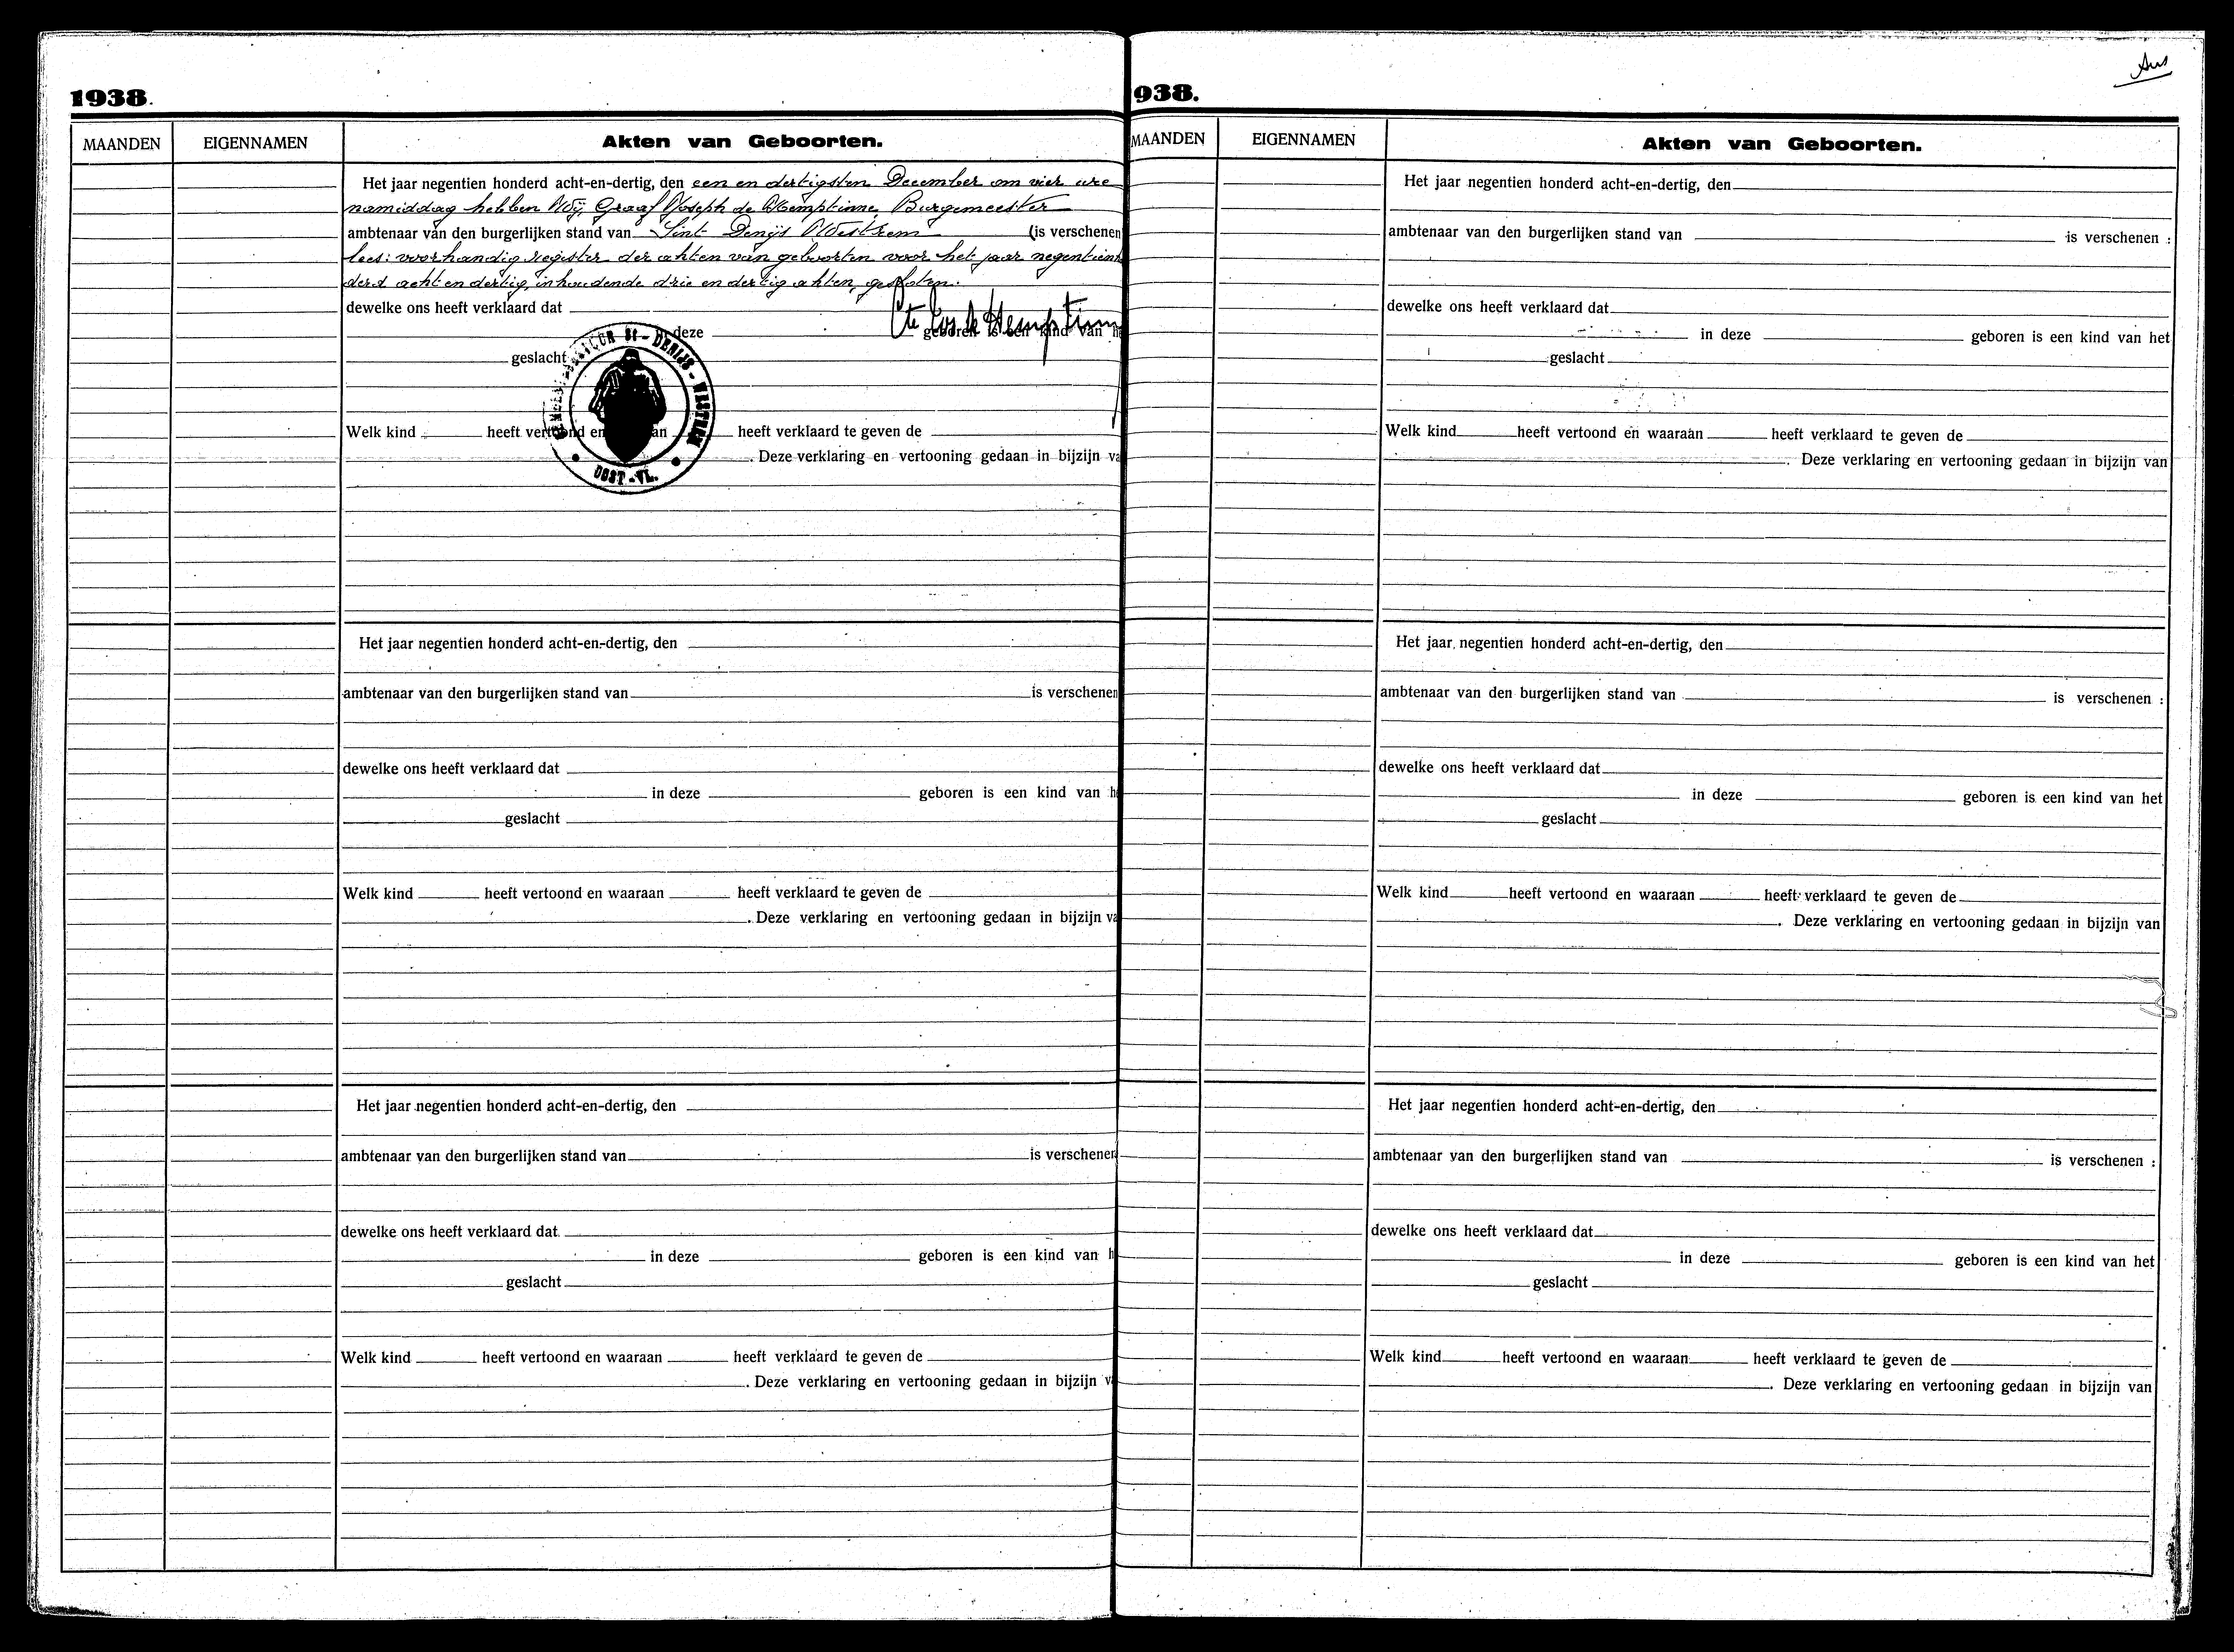 1938.
MAANDEN EIGENNAMEN Akten van Geboorten.
Het jaar negentien honderd acht-en-dertig, den een en dertigsten December om vier ure
namiddag hebben Wij, Graaf Joseph de Hemptinne, Burgemeester
ambtenaar van den burgerlijken stand van Sint Denijs Westrem (is verschenen
lees: voorhandig register der akten van geboorten voor het jaar negentien
derd acht en dertig, inhoudende drie en dertig akten, gesloten.
dewelke ons heeft verklaard dat
Cte Jos de Hemptinne
deze geboren is een kind van h
geslacht
ST - DENIJS - WESTREM
OOST - VL.
Welk kind heeft vertoond en heeft verklaard te geven de
. Deze verklaring en vertooning gedaan in bijzijn va
Het jaar negentien honderd acht-en-dertig, den
ambtenaar van den burgerlijken stand van is verschenen
dewelke ons heeft verklaard dat
in deze geboren is een kind van h
geslacht
Welk kind heeft vertoond en waaraan heeft verklaard te geven de
. Deze verklaring en vertooning gedaan in bijzijn va
Het jaar negentien honderd acht-en-dertig, den
ambtenaar van den burgerlijken stand van is verschenen
dewelke ons heeft verklaard dat
in deze geboren is een kind van h
geslacht
Welk kind heeft vertoond en waaraan heeft verklaard te geven de
. Deze verklaring en vertooning gedaan in bijzijn v
938.
MAANDEN EIGENNAMEN Akten van Geboorten.
Het jaar negentien honderd acht-en-dertig, den
ambtenaar van den burgerlijken stand van is verschenen :
dewelke ons heeft verklaard dat
in deze geboren is een kind van het
geslacht
Welk kind heeft vertoond en waaraan heeft verklaard te geven de
. Deze verklaring en vertooning gedaan in bijzijn van
Het jaar negentien honderd acht-en-dertig, den
ambtenaar van den burgerlijken stand van is verschenen :
dewelke ons heeft verklaard dat
in deze geboren is een kind van het
geslacht
Welk kind heeft vertoond en waaraan heeft verklaard te geven de
. Deze verklaring en vertooning gedaan in bijzijn van
Het jaar negentien honderd acht-en-dertig, den
ambtenaar van den burgerlijken stand van is verschenen :
dewelke ons heeft verklaard dat
in deze geboren is een kind van het
geslacht
Welk kind heeft vertoond en waaraan heeft verklaard te geven de
. Deze verklaring en vertooning gedaan in bijzijn van